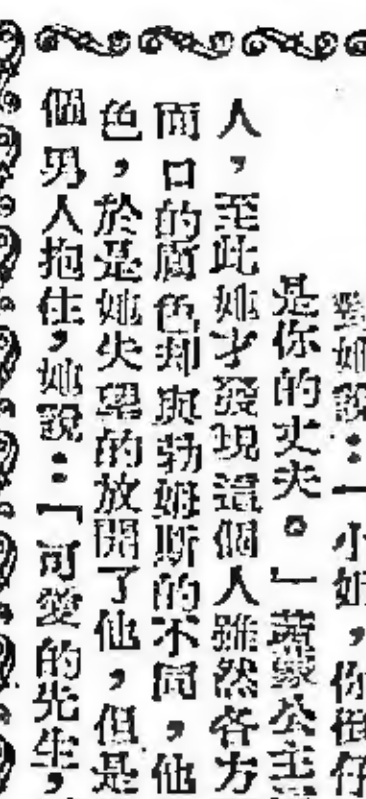 對她說：「小姐，你從仔
是你的丈夫。」莎蒙公主
人，至此她才發現這個人雖然各方
面口的顏色却與勃姆斯的不同，他
色，於是她失望的放開了他，但是
個男人抱住，她說：「可愛的先生，